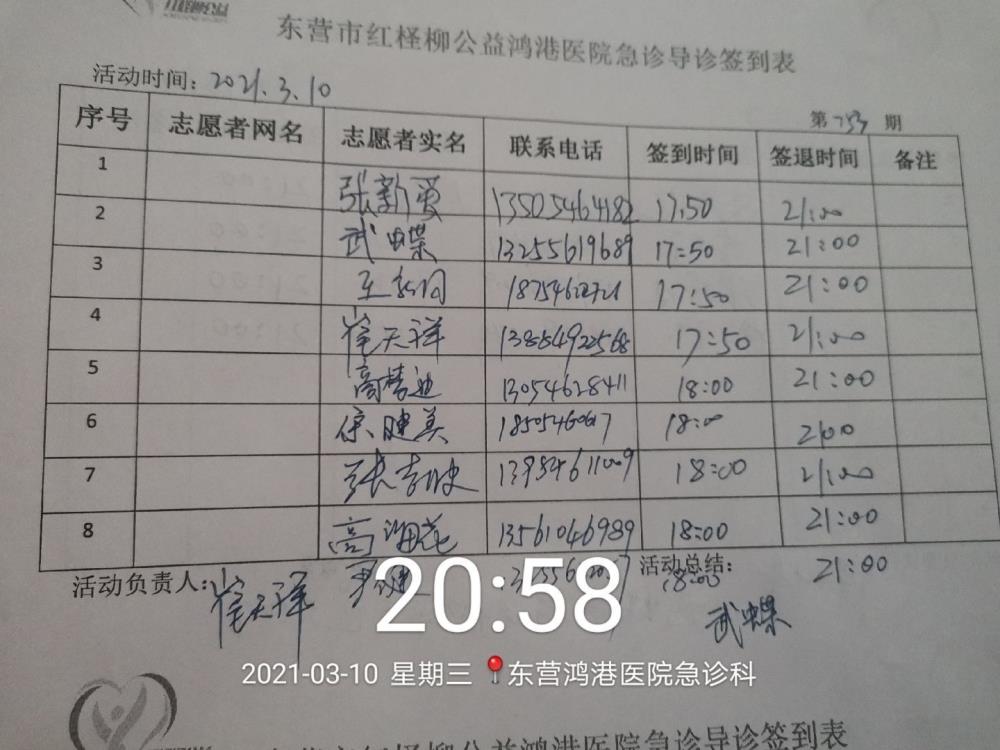 东营市红柽柳公益鸿港医院急诊导诊签到表
活动时间：2021.3.10
第 753 期
序号 志愿者网名 志愿者实名 联系电话 签到时间 签退时间 备注
1 张新爱 13505464182 17:50 21:00
2 武蝶 13255619689 17:50 21:00
3 17:50 21:00
4 崔天祥 13854922568 17:50 21:00
5 高梦迪 13054628411 18:00 21:00
6 徐建美 18:00 21:00
7 18:00 21:00
8 高海花 13561046989 18:00 21:00
18:00 21:00
活动负责人：崔天祥 活动总结：
武蝶
20:58
2021-03-10 星期三 东营鸿港医院急诊科
东营市红柽柳公益鸿港医院急诊导诊签到表